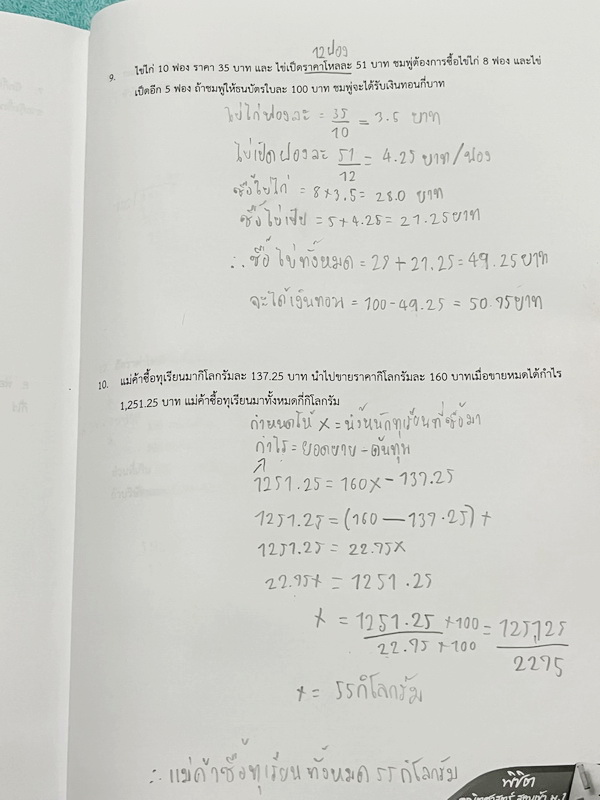 12ฟอง
9. ไข่ไก่ 10 ฟอง ราคา 35 บาท และ ไข่เป็ดราคาโหลละ 51 บาท ชมพู่ต้องการซื้อไข่ไก่ 8 ฟอง และไข่
เป็ดอีก 5 ฟอง ถ้าชมพู่ให้ธนบัตรใบละ 100 บาท ชมพู่จะได้รับเงินทอนกี่บาท
ไข่ไก่ฟองละ = 35/10 = 3.5 บาท
ไข่เป็ดฟองละ 51/12 = 4.25 บาท/ฟอง
ซื้อไข่ไก่ = 8×3.5 = 28.0 บาท
ซื้อไข่เป็ด = 5×4.25 = 21.25 บาท
∴ ซื้อไข่ทั้งหมด = 28 + 21.25 = 49.25 บาท
จะได้เงินทอน = 100-49.25 = 50.75 บาท
10. แม่ค้าซื้อทุเรียนมากิโลกรัมละ 137.25 บาท นำไปขายราคากิโลกรัมละ 160 บาทเมื่อขายหมดได้กำไร
1,251.25 บาท แม่ค้าซื้อทุเรียนมาทั้งหมดกี่กิโลกรัม
กำหนดให้ x = น้ำหนักทุเรียนที่ซื้อมา
กำไร = ยอดขาย - ต้นทุน
1251.25 = 160x - 137.25
1251.25 = (160 - 137.25) x
1251.25 = 22.75x
22.75x = 1251.25
x = 1251.25 ×100 / 22.75 ×100 = 125125 / 2275
x = 55 กิโลกรัม
∴ แม่ค้าซื้อทุเรียนทั้งหมด 55 กิโลกรัม
พิชิต